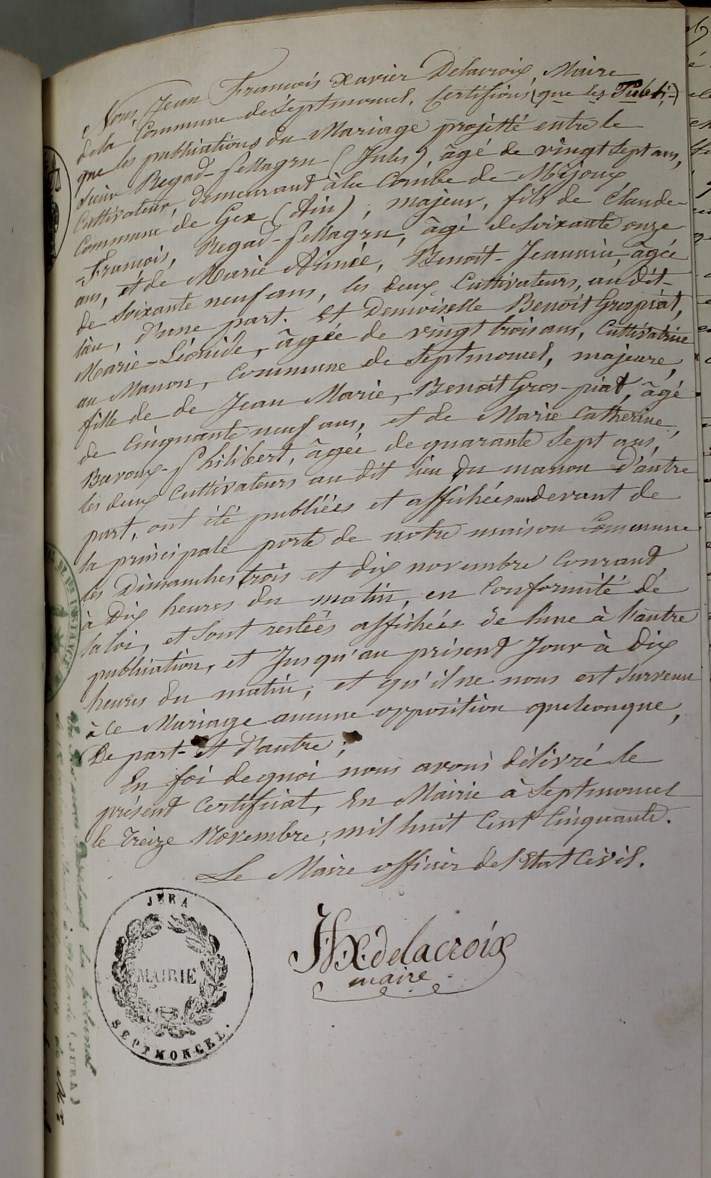 Nous, Jean François Xavier Delacroix, Maire
de la Commune de Septmoncel, Certifions que les
que les publications du Mariage projetté entre le
sieur Regad-Pellagru (Jules) âgé de vingt sept ans,
Cultivateur, demeurant à la Combe de Mijoux
Commune de Gex (Ain), majeur, fils de Claude-
François, Regad-Pellagru, âgé de soixante onze
ans, et de Marie Aimée, Benoit-Jeannin, âgée
de soixante neuf ans, les deux Cultivateurs, au dit-
lieu, d'une part. Et Demoiselle Benoit Gros piat,
Marie-Léonide, âgée de vingt trois ans, Cultivatrice
au Manon, Commune de Septmoncel, majeure,
fille de de Jean Marie, Benoit Gros-piat, âgé
de Cinquante neuf ans, et de Marie Catherine,
Bavoux-Philibert, âgée de quarante Sept ans,
les deux Cultivateurs au dit lieu du manon d'autre
part, ont été publiées et affichées devant de
la principale porte de notre maison Commune
les Dimanches trois et dix novembre Courant,
à Dix heures du matin, en Conformité de
la loi, et sont restées affichées de l'une à l'autre
publication, et Jusqu'au présent Jour à Dix
heures du matin, et qu'il ne nous est survenu
à ce Mariage aucune opposition quelconque,
De part et d'autre;
En foi de quoi nous avons délivré le
présent Certificat, En Mairie à Septmoncel
le Treize Novembre, mil huit Cent Cinquante.
Le Maire officier de l'Etat Civil.
JFX. delacroix
maire.
JURA
MAIRIE
SEPTMONCEL.